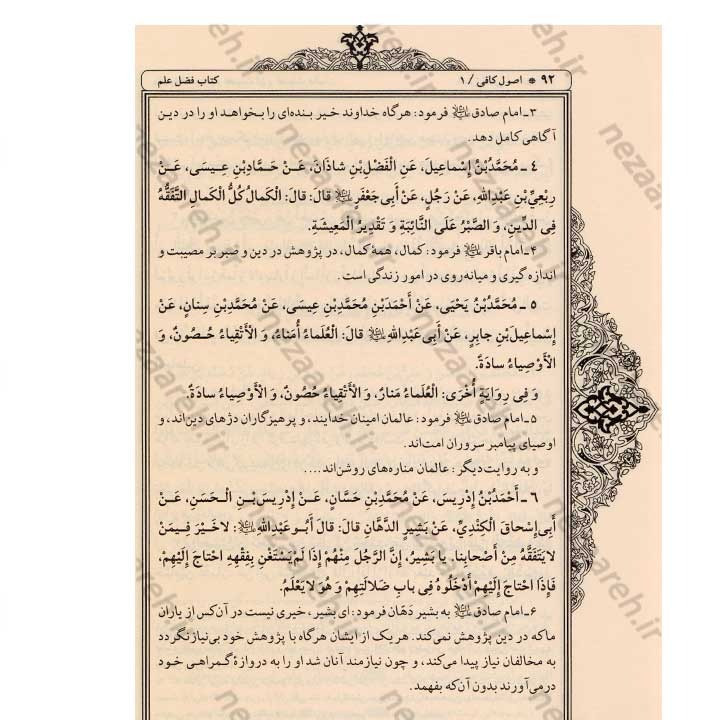 ٩٢ * اصول کافی / ١
کتاب فضل علم
٣ـ امام صادق ﷷ فرمود: هرگاه خداوند خیر بنده‌ای را بخواهد او را در دین
آگاهی کامل دهد.
٤ ـ مُحَمَّدُبْنُ إِسْماعِیلَ، عَنِ الْفَضْلِ‌بْنِ شاذَانَ، عَـنْ حَـمَّادِبْنِ عِـیسَی، عَـنْ
رِبْعِیِّ‌بْنِ عَبْدِاللهِ، عَنْ رَجُلٍ، عَنْ أَبِی جَعْفَرٍ قَالَ: قَالَ: الْکَمالُ کُلُّ الْکَمالِ التَّفَقُّهُ
فِی الدِّینِ، وَ الصَّبْرُ عَلَی النَّائِبَةِ وَ تَقْدِیرُ الْمَعِیشَةِ.
۴ـ امام باقر فرمود: کمال، همهٔ کمال، در پژوهش در دین و صبر بر مصیبت و
اندازه گیری و میانه‌روی در امور زندگی است.
٥ ـ مُحَمَّدُبْنُ یَحْیَی، عَنْ أَحْمَدَبْنِ مُحَمَّدِبْنِ عِیسَی، عَنْ مُحَمَّدِبْنِ سِنانٍ، عَنْ
إِسْماعِیلَ‌بْنِ جابِرٍ، عَنْ أَبِی عَبْدِاللهِ قالَ: الْعُلَماءُ أُمَناءُ، وَ الْأَتْقِیاءُ حُـصُونٌ، وَ
الْأَوْصِیاءُ سادَةٌ.
وَ فِی رِوایَةٍ أُخْرَی: الْعُلَماءُ مَنارٌ، وَ الْأَتْقِیاءُ حُصُونٌ، وَ الْأَوْصِیاءُ سادَةٌ.
۵ـ امام صادق فرمود: عالمان امینان خدایند، و پرهیزگاران دژهای دین‌اند، و
اوصیای پیامبر سروران امت‌اند.
و به روایت دیگر: عالمان مناره‌های روشن‌اند....
٦ ـ أَحْمَدُبْنُ إِدْرِیسَ، عَنْ مُحَمَّدِبْنِ حَسَّانٍ، عَـنْ إِدْرِیسَ‌بْـنِ الْـحَسَنِ، عَـنْ
أَبِی‌إِسْحاقَ الْکِنْدِیِّ، عَنْ بَشِیرٍ الدَّهَّانِ قالَ: قالَ أَبُـوعَبْدِاللهِ: لاخَـیْرَ فِـیمَنْ
لایَتَفَقَّهُ مِنْ أَصْحابِنا. یا بَشِیرُ، إِنَّ الرَّجُلَ مِنْهُمْ إِذَا لَمْ‌یَسْتَغْنِ بِفِقْهِهِ احْتاجَ إِلَیْهِمْ،
فَإِذَا احْتاجَ إِلَیْهِمْ أَدْخَلُوهُ فِی بابِ ضَلالَتِهِمْ وَ هُوَ لایَعْلَمُ.
۶ـ امام صادق به بشیر دَهّان فرمود: ای بشیر، خیری نیست در آن‌کس از یاران
ما که در دین پژوهش نمی‌کند. هر یک از ایشان هرگاه با پژوهش خود بی‌نیاز نگردد
به مخالفان نیاز پیدا می‌کند، و چون نیازمند آنان شد او را به دروازهٔ گمراهی خود
درمی‌آورند بدون آن‌که بفهمد.
nezaareh.ir